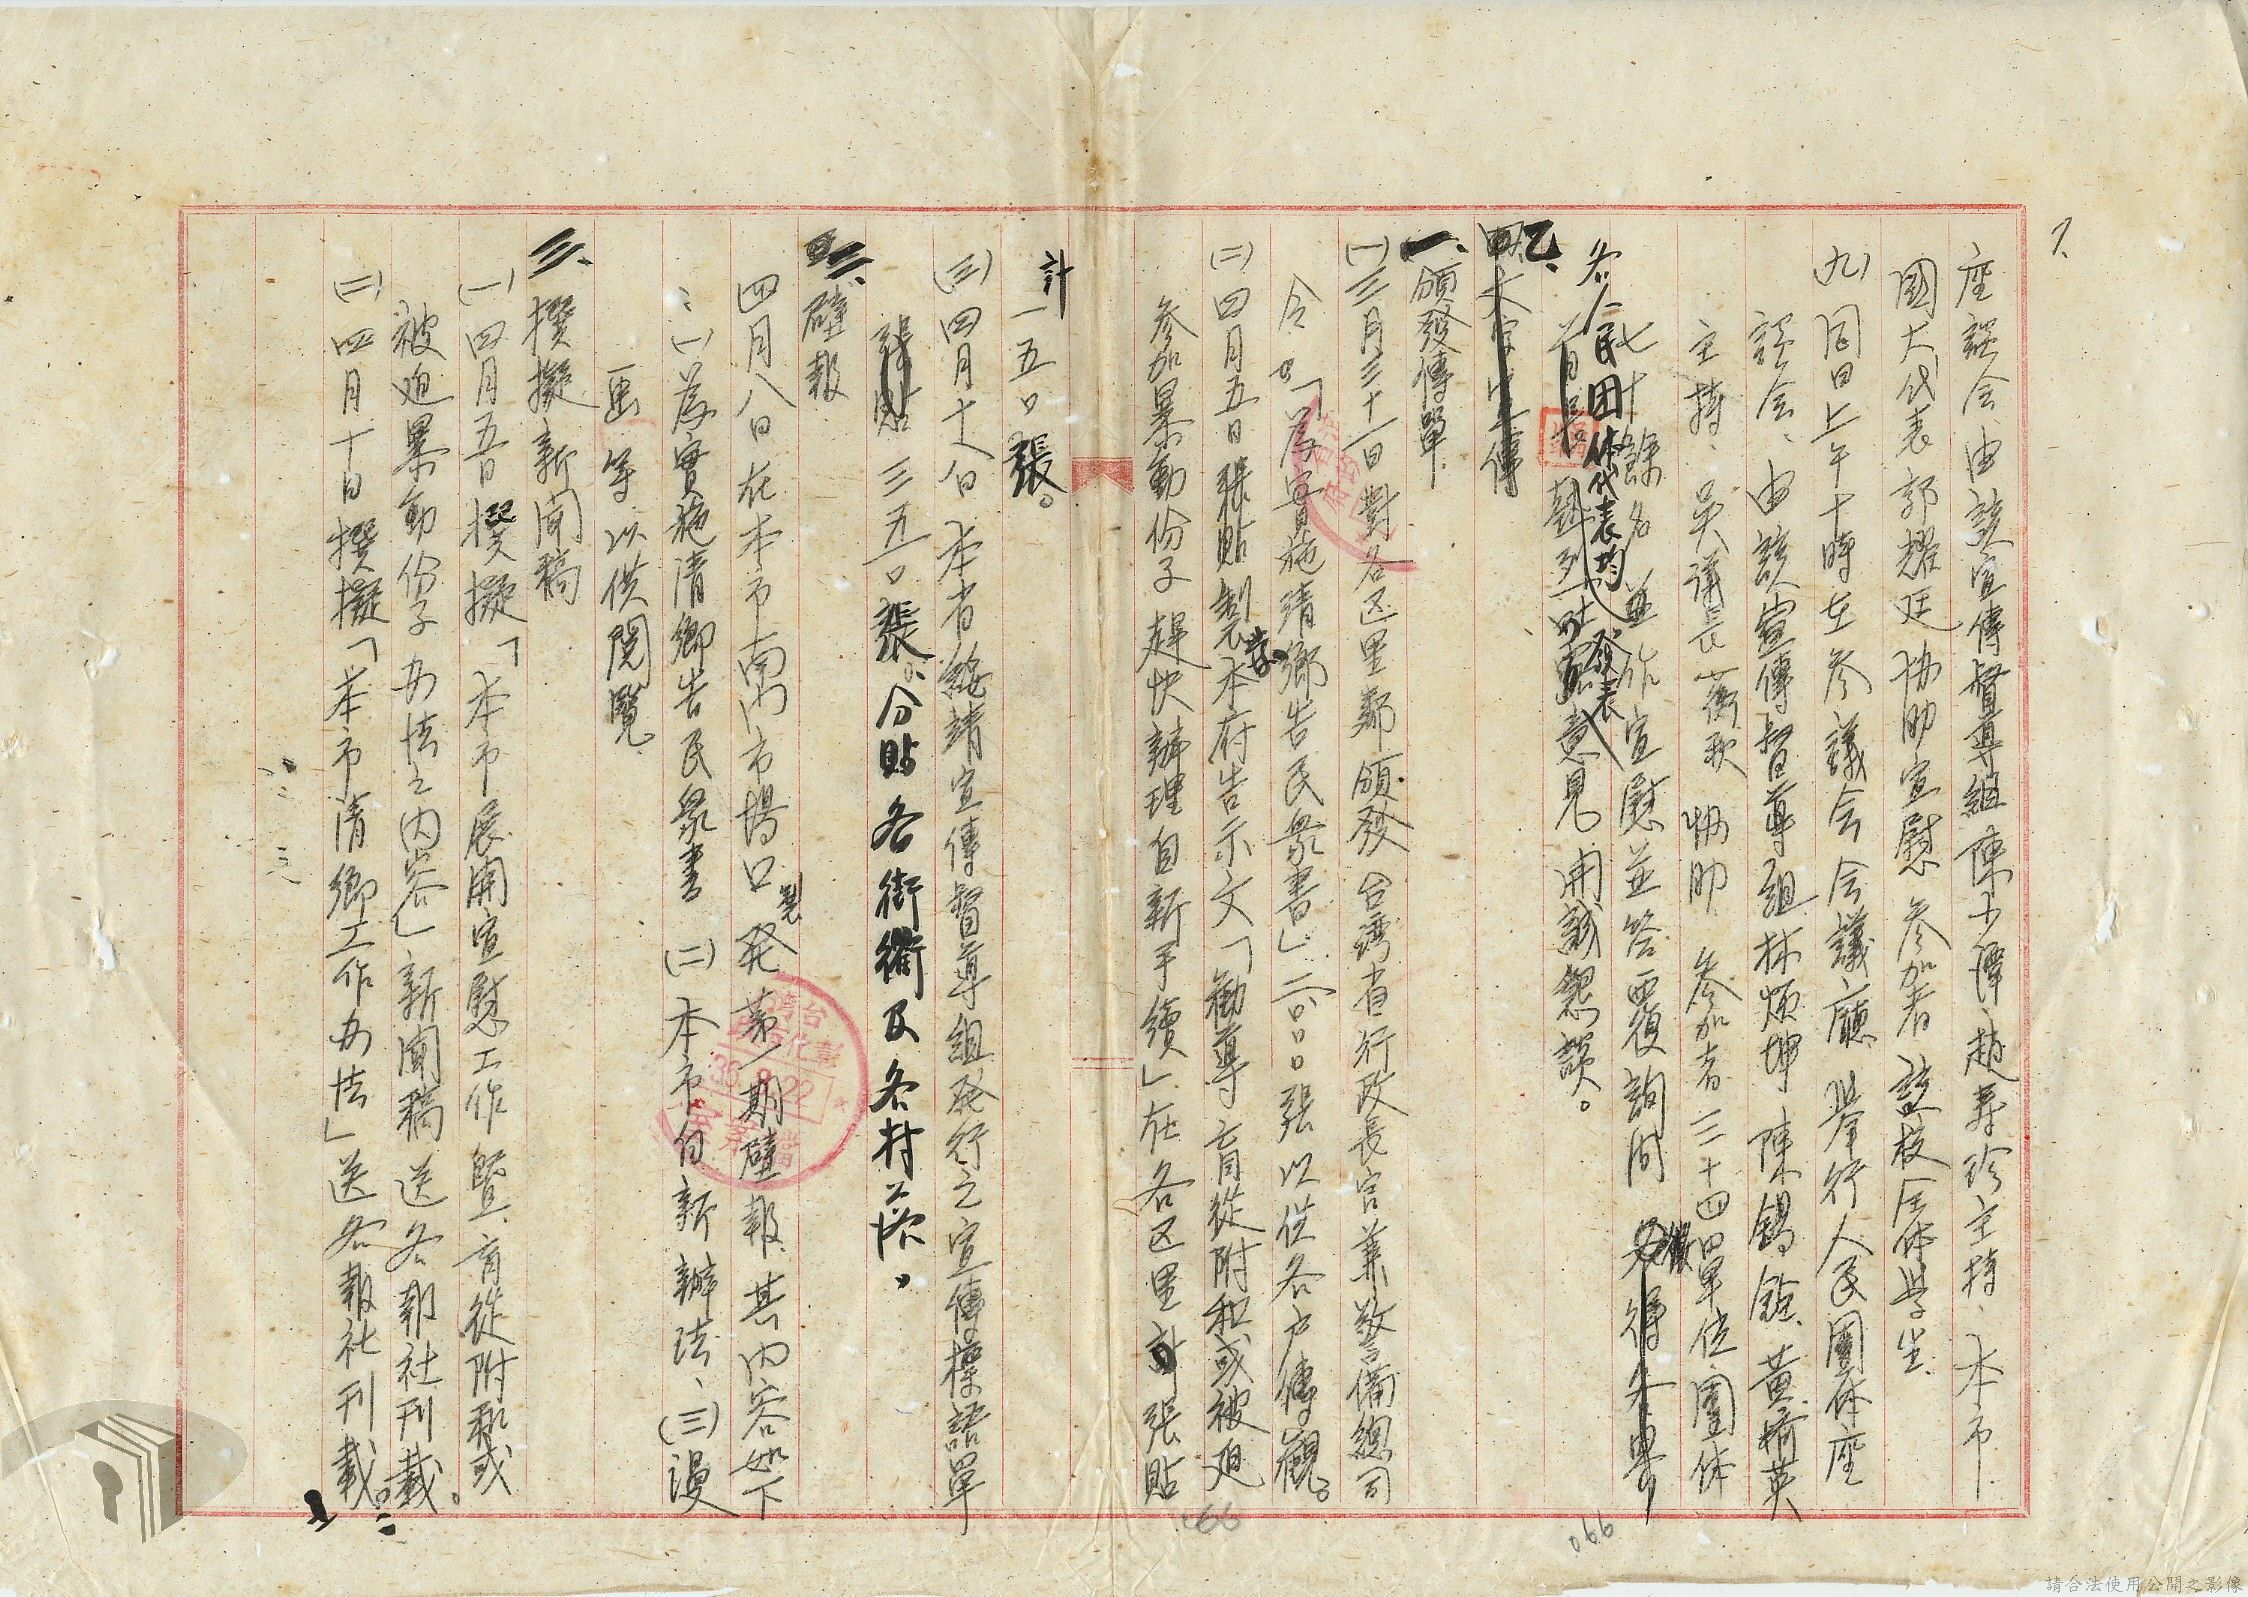 7.
座談会由該宣傳督導組陳少澤、趙壽珍主持、本市
國大代表郭耀廷協助宣慰参加者該校全体學生、
(九)同日上午十時在参議会会議廳舉行人民團体座
談会、由該宣傳督導組林煩坤陳錫銓、黃椅英
主持、吳議長蘅秋協助参加者三十四單位團体
七十餘名並作宣慰並答覆詢問
各人民团体代表均發表意見開誠懇談。
乙、
一、頒發傳單
(一)三月三十一日對各区里鄰頒發台灣省行政長官兼警備總司
令「為實施清鄉告民眾書」二〇〇〇張以供各戶傳觀。
(二)四月五日張貼製本府告示文「勸導盲從附和或被迫
参加暴動份子趕快辦理自新手續」在各区里張貼
計一五〇張。
(三)四月十八日本省綏靖宣傳督導組発行之宣傳標語單
三五〇張。分貼各街衢及各村落。
二、壁報
四月八日在本市南門市場口製発第一期壁報其内容如下
:(一)為實施清鄉告民眾書(二)本市自新辦法、(三)漫
画等以供閱覽
三、撰擬新聞稿
(一)四月五日撰擬「本市展開宣慰工作暨盲從附和或
被迫暴動份子办法之内容」新聞稿送各報社刊載。
(二)四月十日撰擬「本市清鄉工作办法」送各報社刊載。
066
066
台灣
彰化
36.9.22
檔案
請合法使用公開之影像